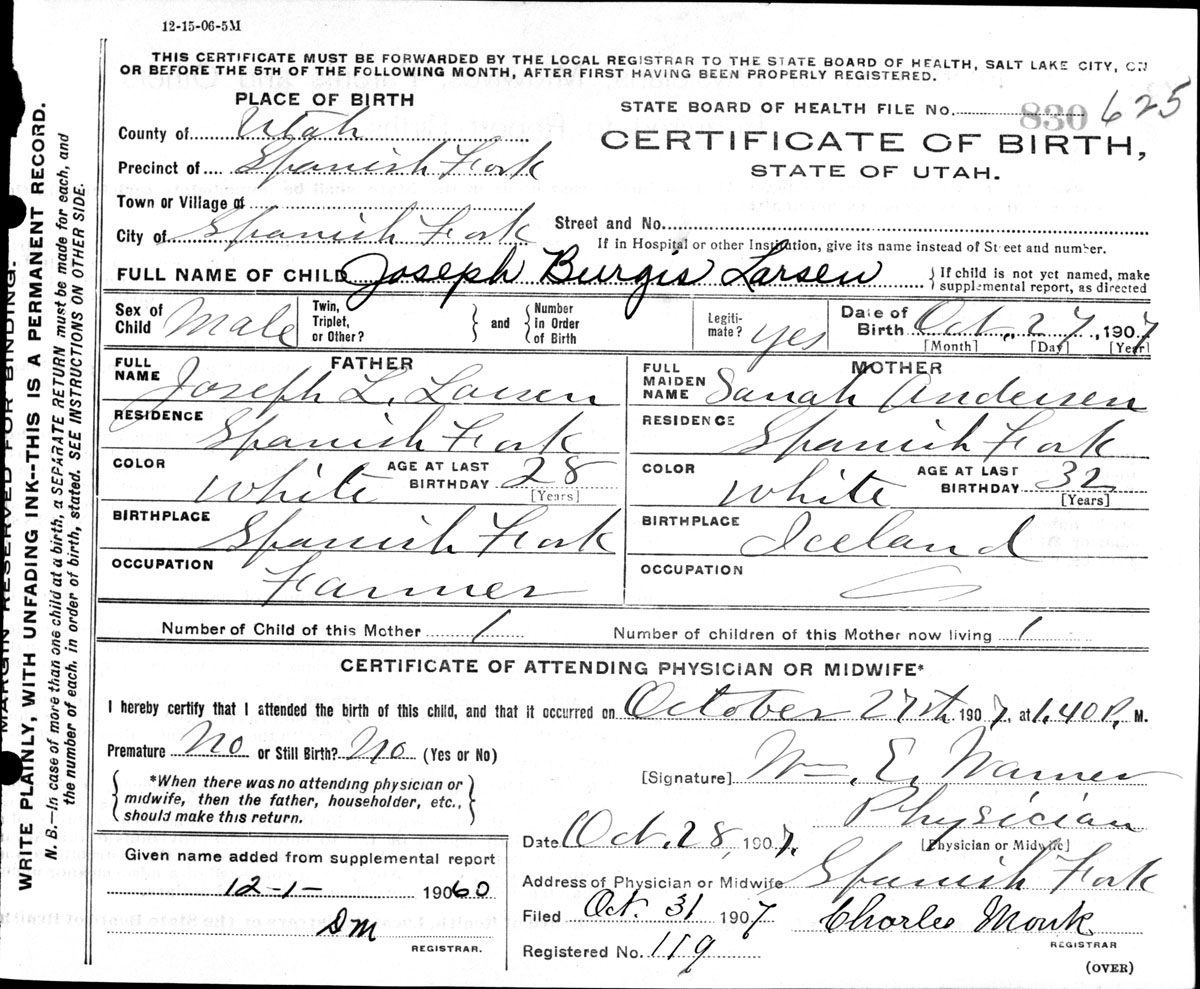 12-15-06-5M
THIS CERTIFICATE MUST BE FORWARDED BY THE LOCAL REGISTRAR TO THE STATE BOARD OF HEALTH, SALT LAKE CITY, ON
OR BEFORE THE 5TH OF THE FOLLOWING MONTH, AFTER FIRST HAVING BEEN PROPERLY REGISTERED.
PLACE OF BIRTH
County of Utah
Precinct of Spanish Fork
Town or Village of
City of Spanish Fork
STATE BOARD OF HEALTH FILE No. 830 625
CERTIFICATE OF BIRTH,
STATE OF UTAH.
Street and No.
If in Hospital or other Institution, give its name instead of Street and number.
FULL NAME OF CHILD Joseph Burgis Larsen { If child is not yet named, make
supplemental report, as directed
Sex of
Child Male
Twin,
Triplet,
or Other? } and { Number
in Order
of Birth
Legiti-
mate? yes
Date of
Birth Oct. 27, 1907
[Month] [Day] [Year]
FATHER
FULL
NAME Joseph L. Larsen
RESIDENCE Spanish Fork
COLOR White AGE AT LAST
BIRTHDAY 28
[Years]
BIRTHPLACE Spanish Fork
OCCUPATION Farmer
MOTHER
FULL
MAIDEN
NAME Sarah Andersen
RESIDENCE Spanish Fork
COLOR White AGE AT LAST
BIRTHDAY 32
[Years]
BIRTHPLACE Iceland
OCCUPATION
Number of Child of this Mother 1 Number of children of this Mother now living 1
CERTIFICATE OF ATTENDING PHYSICIAN OR MIDWIFE*
I hereby certify that I attended the birth of this child, and that it occurred on October 27th 1907, at 1.40 P. M.
Premature No or Still Birth? No (Yes or No)
{ *When there was no attending physician or
midwife, then the father, householder, etc.,
should make this return. }
[Signature] Wm. E. Warner
Physician
[Physician or Midwife]
Date Oct. 28, 1907.
Address of Physician or Midwife Spanish Fork
Filed Oct. 31 1907 Charles Monk
REGISTRAR
Registered No. 119
(OVER)
Given name added from supplemental report
12-1- 19060
DM
REGISTRAR.
MARGIN RESERVED FOR BINDING.
WRITE PLAINLY, WITH UNFADING INK--THIS IS A PERMANENT RECORD.
N. B.—In case of more than one child at a birth, a SEPARATE RETURN must be made for each, and
the number of each, in order of birth, stated. SEE INSTRUCTIONS ON OTHER SIDE.